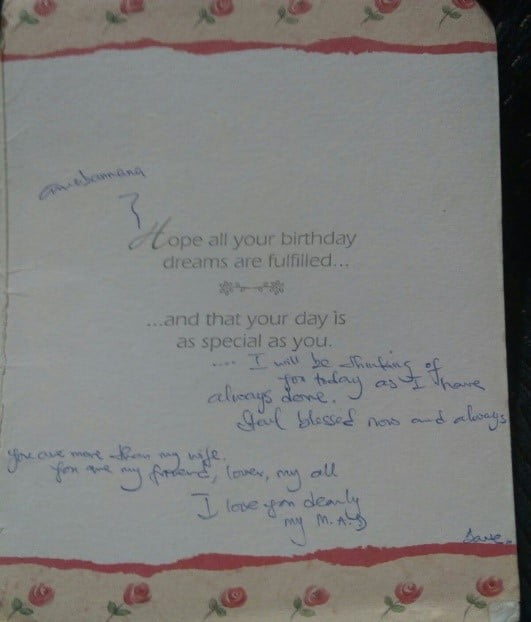 Hope all your birthday
dreams are fulfilled...
...and that your day is
as special as you.
.... I will be thinking of
you today as I have
always done.
Stay blessed now and always
You are more than my wife.
You are my friend, lover, my all
I love you dearly
my M.A.D